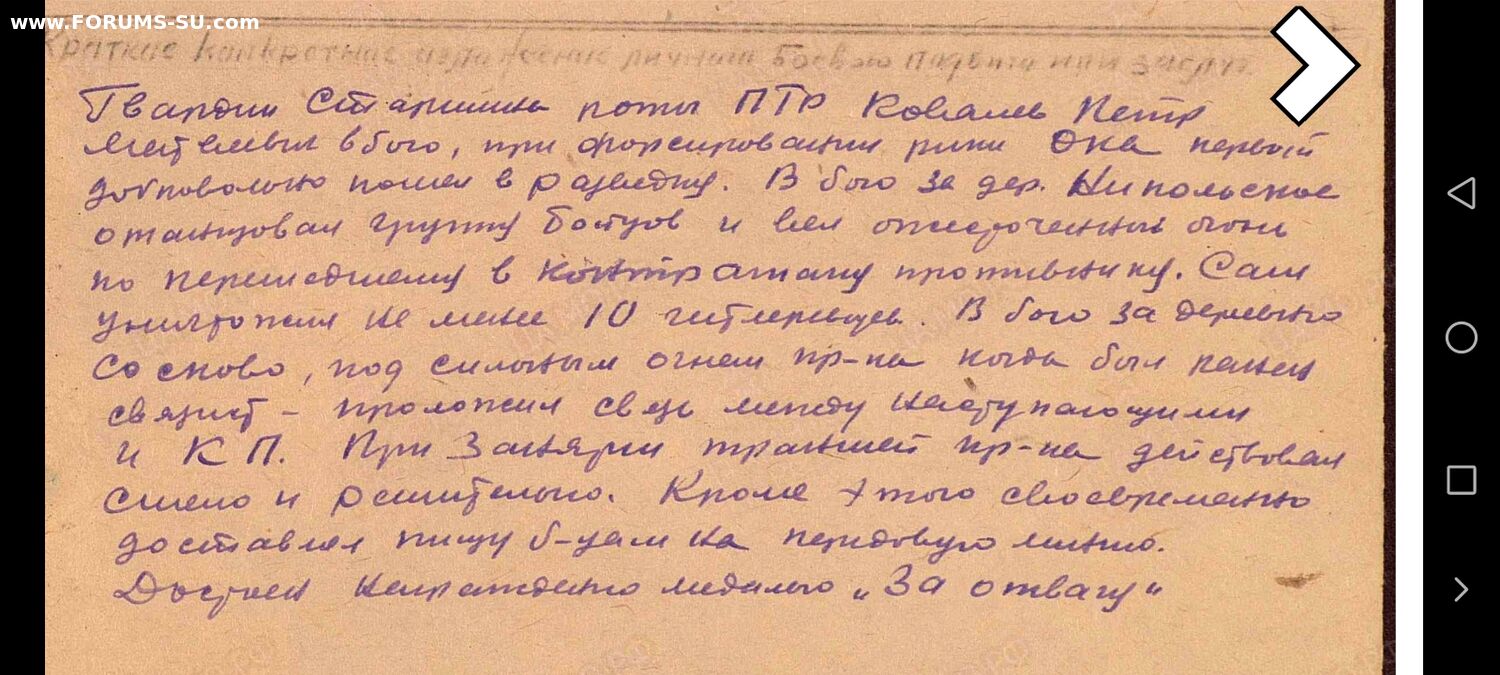 www.FORUMS-SU.com
Краткие конкретные изложение личного боевого подвига или заслуг.
Гвардии Старшина роты ПТР Коваль Петр
в бою, при форсировании реки Ока первый
добровольно пошел в разведку. В бою за дер. Никольское
группу бойцов и вел ожесточенный огонь
по перешедшему в контратаку противнику. Сам
уничтожил не менее 10 гитлеровцев. В бою за деревню
Сосково, под сильным огнем пр-ка когда был ранен
связист - проложил связь между наступающими
и КП. При занятии траншей пр-ка действовал
смело и решительно. Кроме этого своевременно
доставлял пищу б-цам на передовую линию.
Достоин награждению медалью „За отвагу"